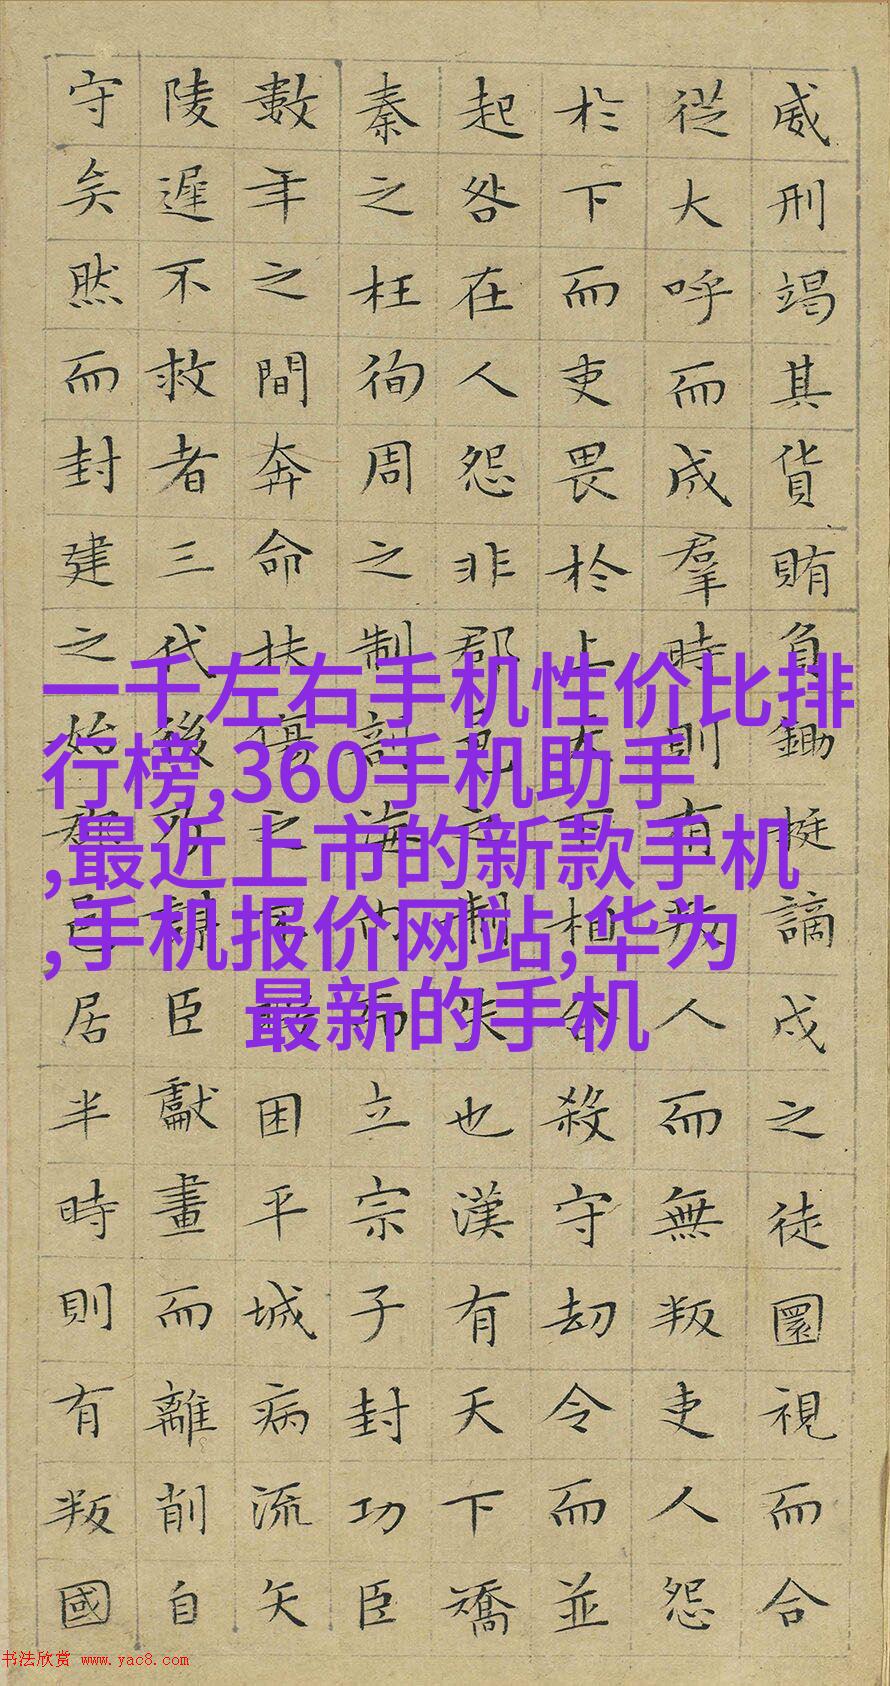 威刑竭其貨賄負鋤梃謫戍之徒圜視而合
從大呼而成羣時則有叛人而無叛吏人怨
於下而吏畏於上天下相合殺守劫令而並
起咎在人怨非郡邑之制失也漢有天下矯
秦之枉徇周之制剖海內而立宗子封功臣
數年之間奔命扶傷之不暇困平城病流矢
陵遲不救者三代後乃謀臣獻畫而離削自
守矣然而封建之始郡邑居半時則有叛國
一千左右手机性价比排
行榜,360手机助手
,最近上市的新款手机
,手机报价网站,华为
最新的手机
书法欣赏 www.yac8.com